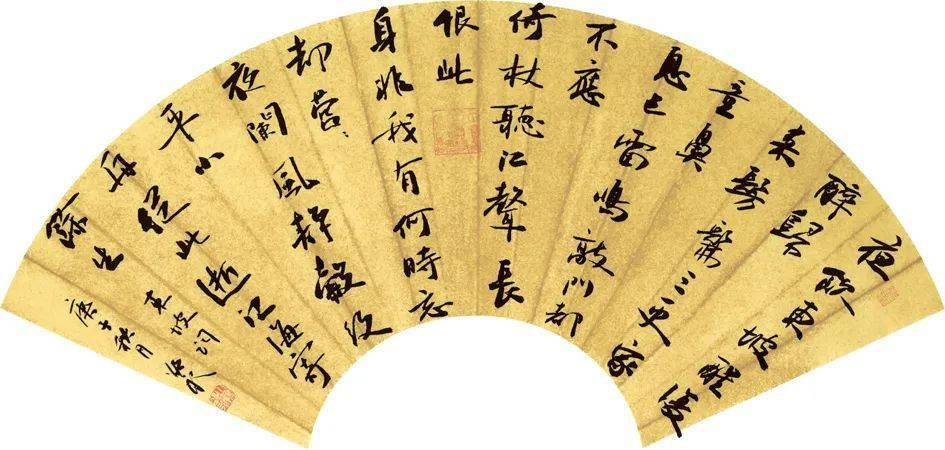 夜飲東坡醒復
醉歸
來髣髴三更家
童鼻
息已雷鳴敲門都
不應
倚杖聽江聲長
恨此
身非我有何時忘
却營〻
夜闌風靜縠紋
平小
舟從此逝江海寄
餘生
東坡詞
庚子秋月